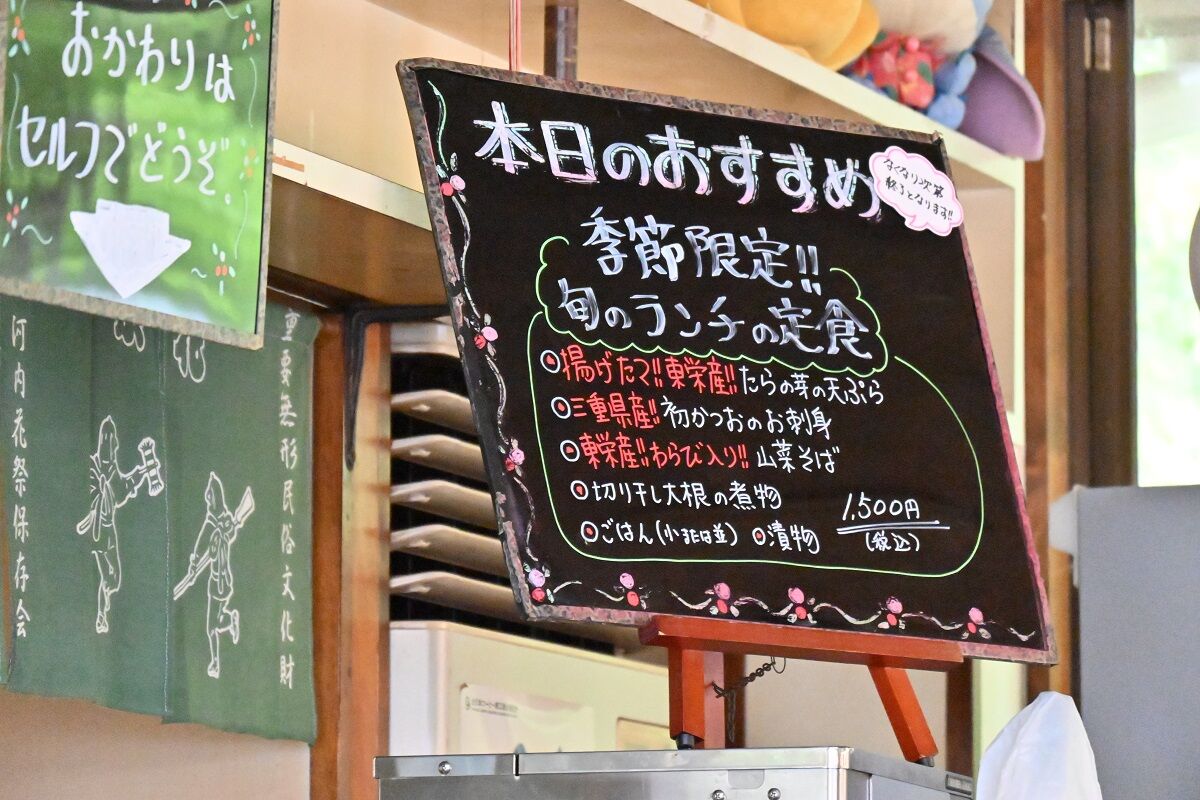 おかわりは
セルフでどうぞ。
本日のおすすめ
なくなり次第
終了となります!!
季節限定!!
旬のランチの定食
揚げたマ!!東栄産!!たらの芽の天ぷら
三重県産!!初かつおのお刺身
東栄産!!わらび入り!!山菜そば
切り干し大根の煮物
ごはん(小または並) 漬物
1,500円
(税込)
重要無形民俗文化財
河内花祭保存会